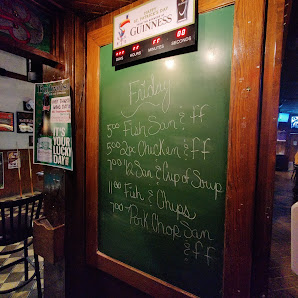 ST. PATRICK'S DAY
GUINNESS
DAYS HOURS MINUTES SECONDS
Friday
5.00 Fish San & ff
5.00 2pc Chicken & ff
7.00 1/2 San & Cup of Soup
11.00 Fish & Chips
7.00 Pork Chop San
& ff
IT'S
YOUR
LUCKY
DAY!